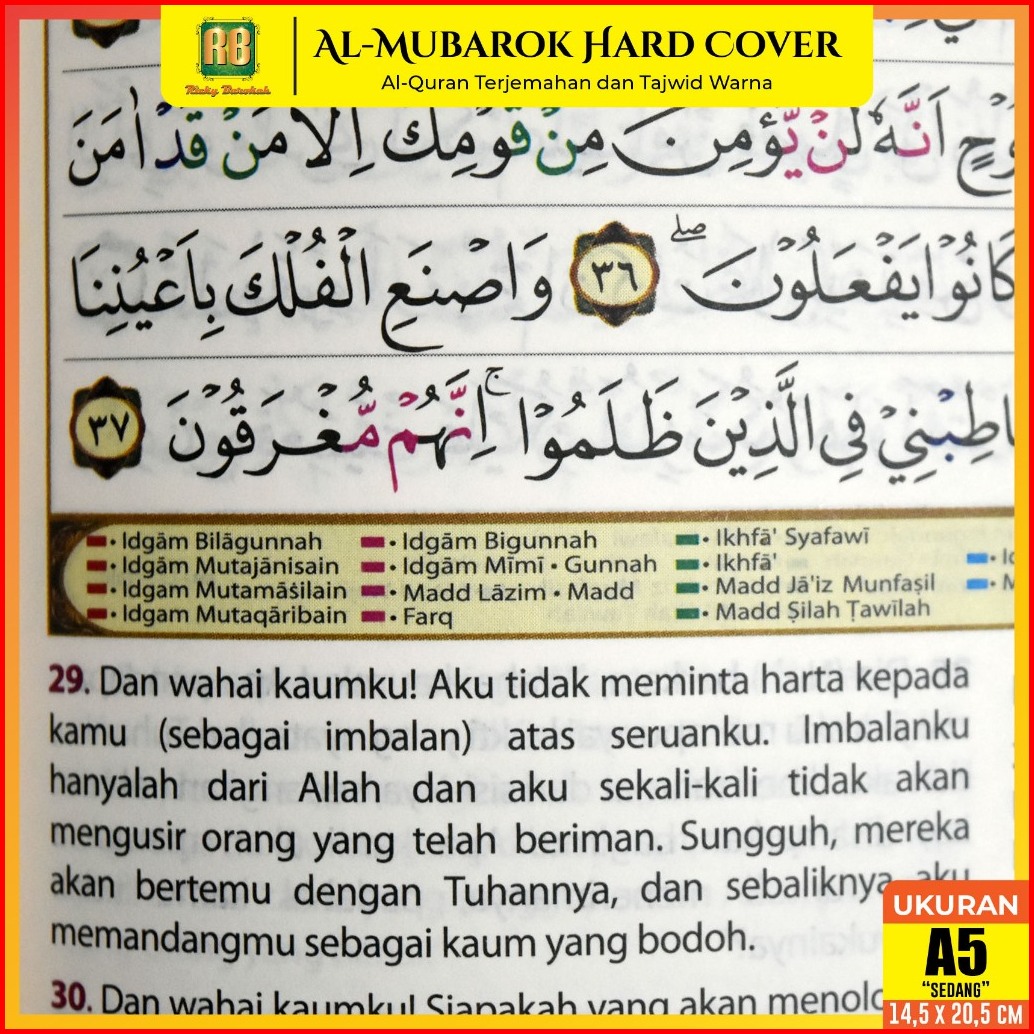 RB
Rizky Barokah
AL-MUBAROK HARD COVER
Al-Quran Terjemahan dan Tajwid Warna
اَنَّهٗ لَنْ يُّؤْمِنَ مِنْ قَوْمِكَ اِلَّا مَنْ قَدْ اٰمَنَ
كَانُوْا يَفْعَلُوْنَ ۖ ٣٦ وَاصْنَعِ الْفُلْكَ بِاَعْيُنِنَا
فِى الَّذِيْنَ ظَلَمُوْا ۚ اِنَّهُمْ مُّغْرَقُوْنَ ٣٧
• Idgām Bilāgunnah • Idgām Bigunnah • Ikhfā' Syafawī
• Idgām Mutajānisain • Idgām Mīmī • Gunnah • Ikhfā'
• Idgam Mutamāṡilain • Madd Lāzim • Madd • Madd Jā'iz Munfaṣil
• Idgam Mutaqāribain • Farq • Madd Ṣilah Ṭawīlah
29. Dan wahai kaumku! Aku tidak meminta harta kepada
kamu (sebagai imbalan) atas seruanku. Imbalanku
hanyalah dari Allah dan aku sekali-kali tidak akan
mengusir orang yang telah beriman. Sungguh, mereka
akan bertemu dengan Tuhannya, dan sebaliknya aku
memandangmu sebagai kaum yang bodoh.
30. Dan wahai kaumku! Siapakah yang akan
UKURAN
A5
“SEDANG”
14,5 X 20,5 CM